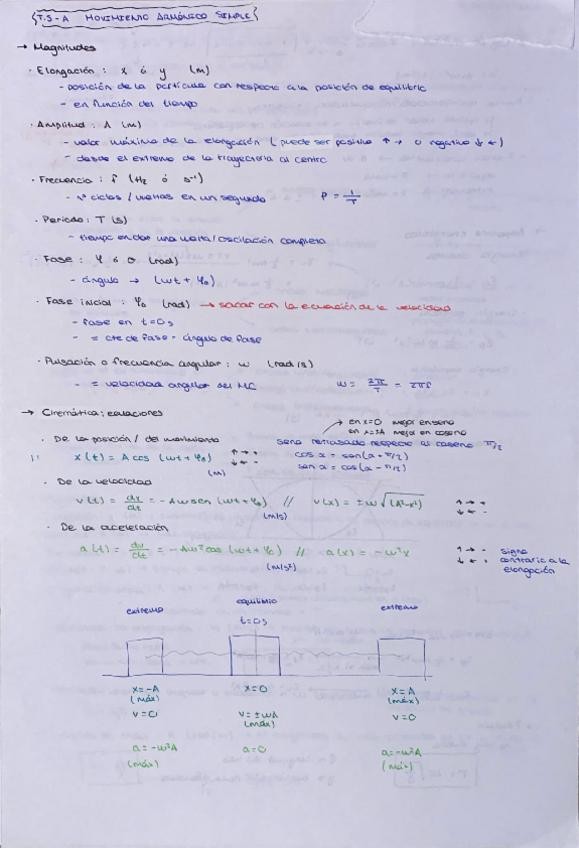 T.5-A MOVIMIENTO ARMÓNICO SIMPLE
→ Magnitudes
· Elongación : x ó y (m)
- posición de la partícula con respecto a la posición de equilibrio
- en función del tiempo
· Amplitud : A (m)
- valor máximo de la elongación ( puede ser positiva ↑ → o negativa ↓ ← )
- desde el extremo de la trayectoria al centro
· Frecuencia : f (Hz ó s⁻¹)
- nº ciclos / vueltas en un segundo f = 1/T
· Periodo : T (s)
- tiempo en dar una vuelta/oscilación completa
· Fase : φ ó σ (rad)
- ángulo → (ωt + φ₀)
· Fase inicial : φ₀ (rad) → sacar con la ecuación de la velocidad
- fase en t=0s
- = cte de fase = ángulo de fase
· Pulsación o frecuencia angular : ω (rad/s)
- = velocidad angular del MC ω = 2π/T = 2πf
→ Cinemática : ecuaciones
→ en x=0 mejor en seno
en x=±A mejor en coseno
· De la posición / del movimiento
seno retrasado respecto al coseno π/2
x(t) = A cos (ωt + φ₀) (m) ↑ → + ↓ ← -
cos α = sen(α + π/2)
sen α = cos(α - π/2)
· De la velocidad
v(t) = dx/dt = -Aω sen (ωt + φ₀) // v(x) = ±ω√(A²-x²) ↑ → + ↓ ← -
(m/s)
· De la aceleración
a(t) = dv/dt = -Aω² cos (ωt + φ₀) // a(x) = -ω²x
(m/s²)
↑ → - signo
↓ ← + contrario a la
elongación
extremo equilibrio extremo
t=0s
x=-A x=0 x=A
(máx) (máx)
v=0 v=±ωA v=0
(máx)
a=-ω²A a=0 a=-ω²A
(máx) (máx)